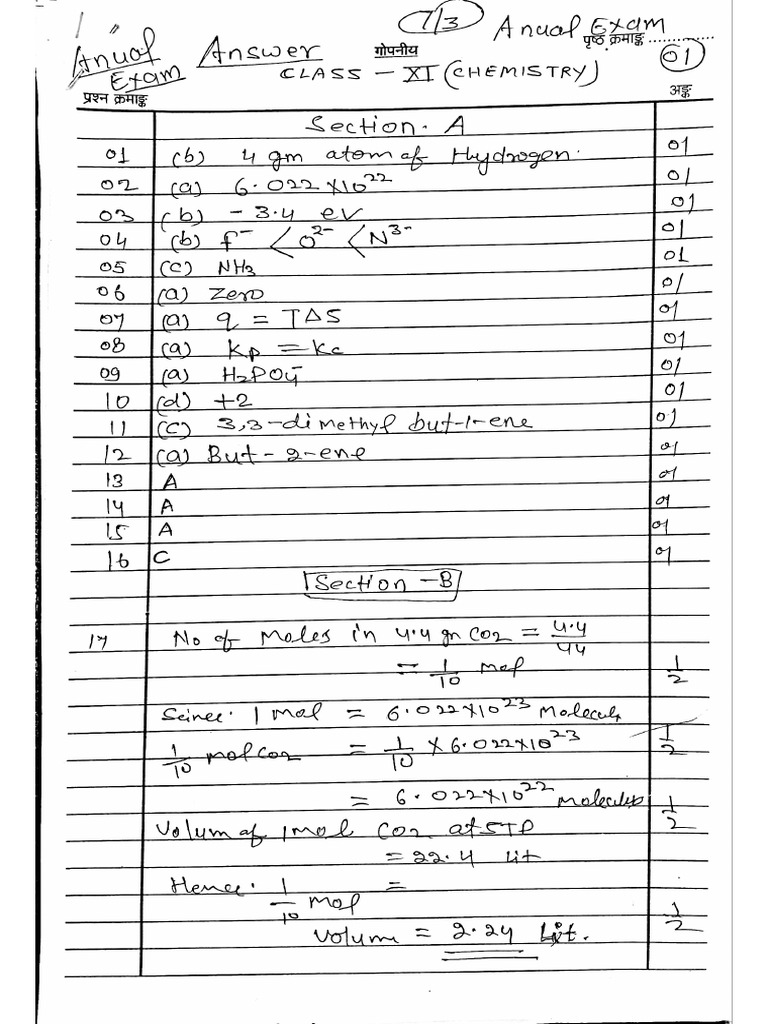 7/3 Anual Exam
Anual Exam Answer गोपनीय पृष्ठ क्रमाङ्क ............
CLASS - XI (CHEMISTRY) 01
प्रश्न क्रमाङ्क अङ्क
Section. A
01 (b) 4 gm atom of Hydrogen. 01
02 (a) 6.022 X10²² 01
03 (b) - 3.4 ev 01
04 (b) f⁻ < O²⁻ < N³⁻ 01
05 (c) NH₃ 01
06 (a) Zero 01
07 (a) q = TΔS 01
08 (a) Kp = Kc 01
09 (a) H₂PO₄⁻ 01
10 (d) +2 01
11 (c) 3,3-dimethyl but-1-ene 01
12 (a) But-2-ene 01
13 A 01
14 A 01
15 A 01
16 C 01
Section -B
17 No of Moles in 4.4 gm CO2 = 4.4/44
= 1/10 mol 1/2
Seinee. 1 mol = 6.022X10²³ Molecule
1/10 mol CO2 = 1/10 X 6.022X10²³ 1/2
= 6.022X10²² Molecules 1/2
Volum of 1 mol CO2 at STP
= 22.4 lit
Hence. 1/10 mol =
Volume = 2.24 Lit. 1/2